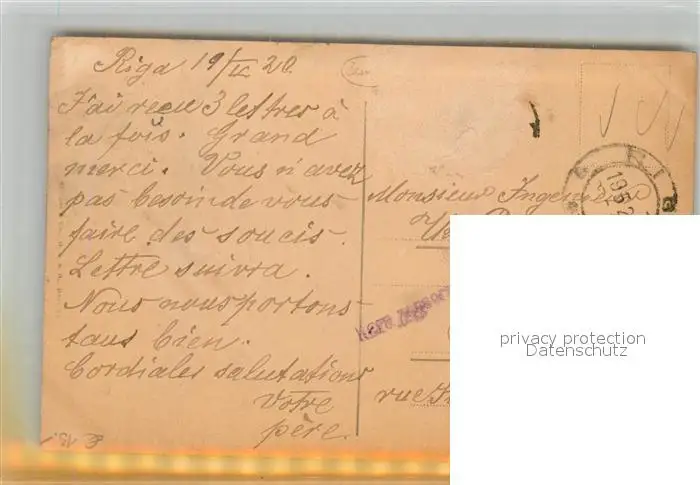 Riga 19/IX 20.
J'ai reçu 3 lettres à
la fois. Grand
merci. Vous n'avez
pas besoin de vous
faire des soucis.
Lettre suivra.
Nous nous portons
tous bien.
Cordiales salutations
Votre
père.
Monsieur Ingenieur
rue
RIG
19 5 2
privacy protection
Datenschutz